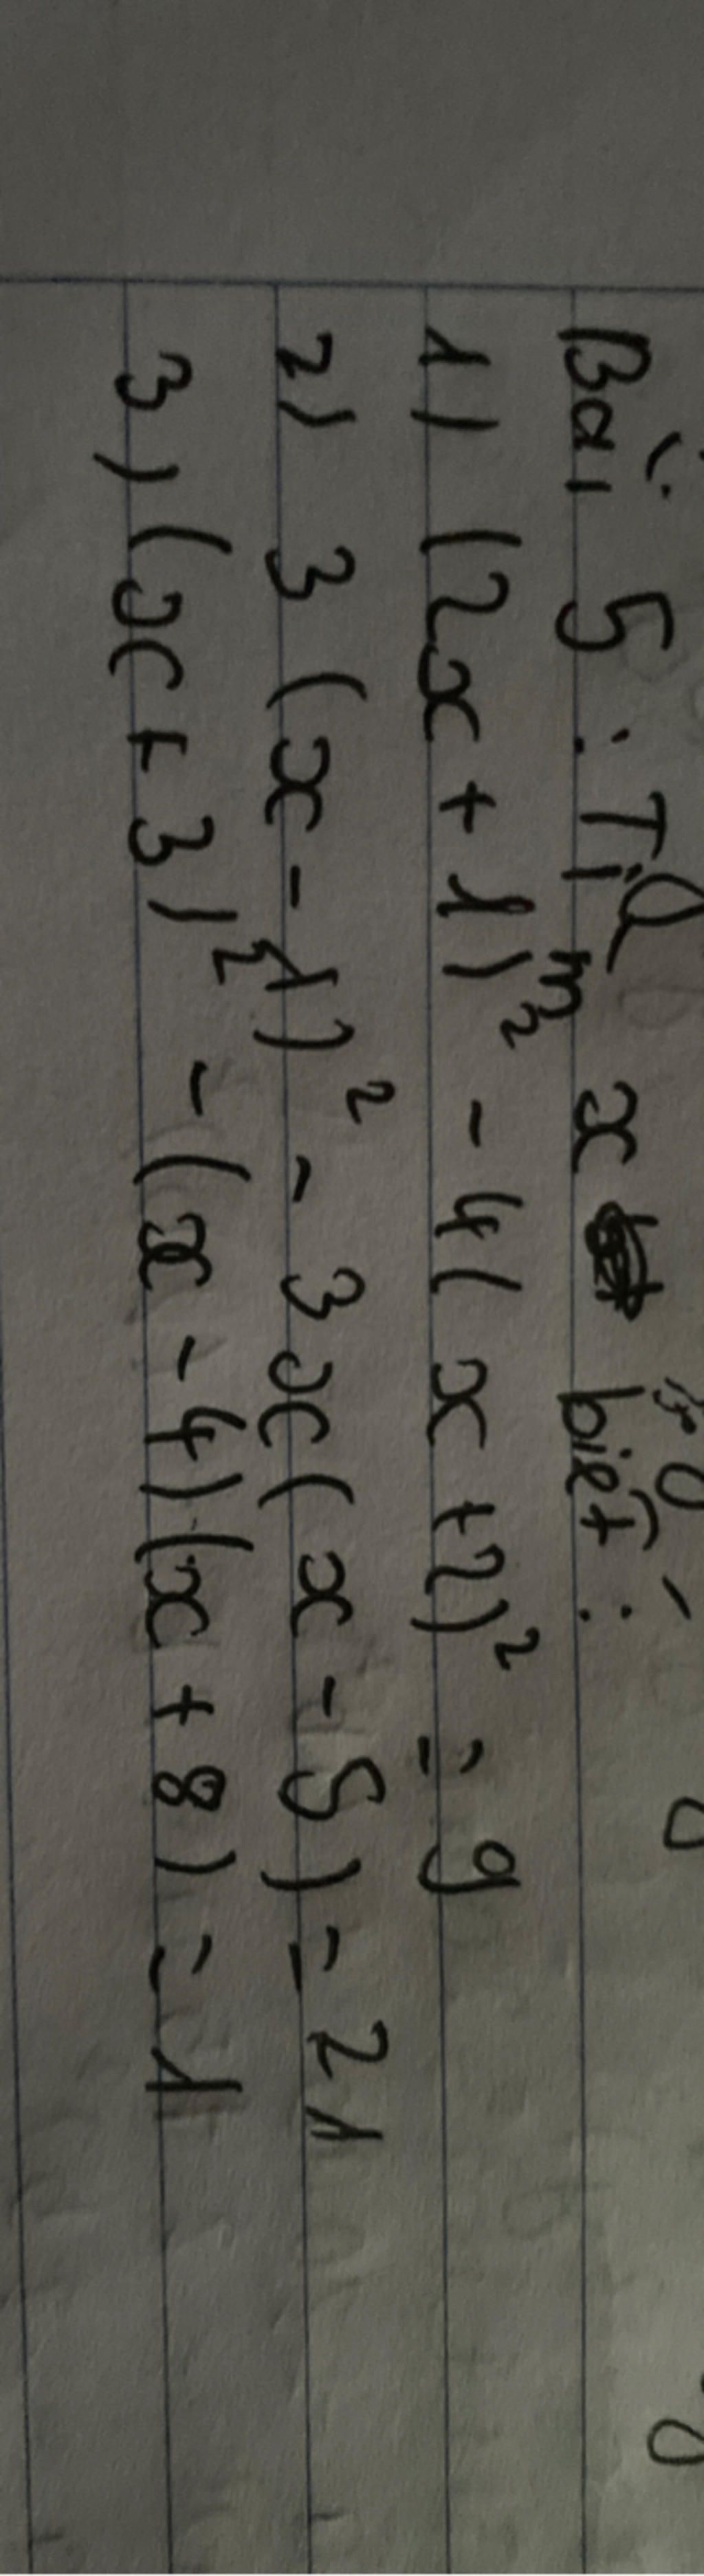 Bài 5 : Tìm x biết :
1) (2x + 1)² - 4(x + 2)² = 9
2) 3(x - 1)² - 3x(x - 5) = 21
3) (x + 3)² - (x - 4)(x + 8) = 1